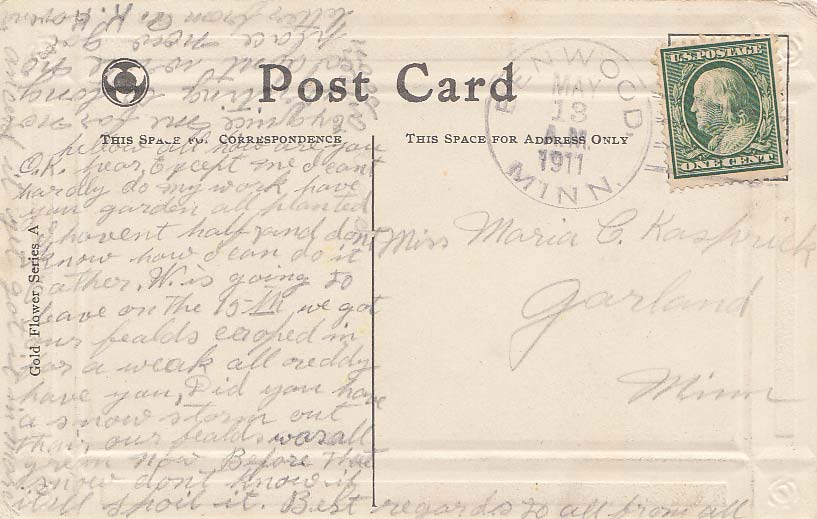 Post Card
THIS SPACE FOR CORRESPONDENCE
THIS SPACE FOR ADDRESS ONLY
BENWOOD
MAY
13
A.M.
1911
MINN.
U.S. POSTAGE
ONE CENT
Gold Flower Series A
Hellow all how are you
O.K. hear, Except me I cant
hardly do my work have
you garden all planted
I havent half and dont
know how I can do it
ather. W. is going to
leave on the 15th, we got
our fealds croped in
for a weak all reddy
have you, Did you have
a snow storm out
thair our fealds was all
green now Before that
snow dont know if
itell spoil it. Best regards to all from all
Miss Maria C. Kasprick
Garland
Minn
letter from A. K.
place now